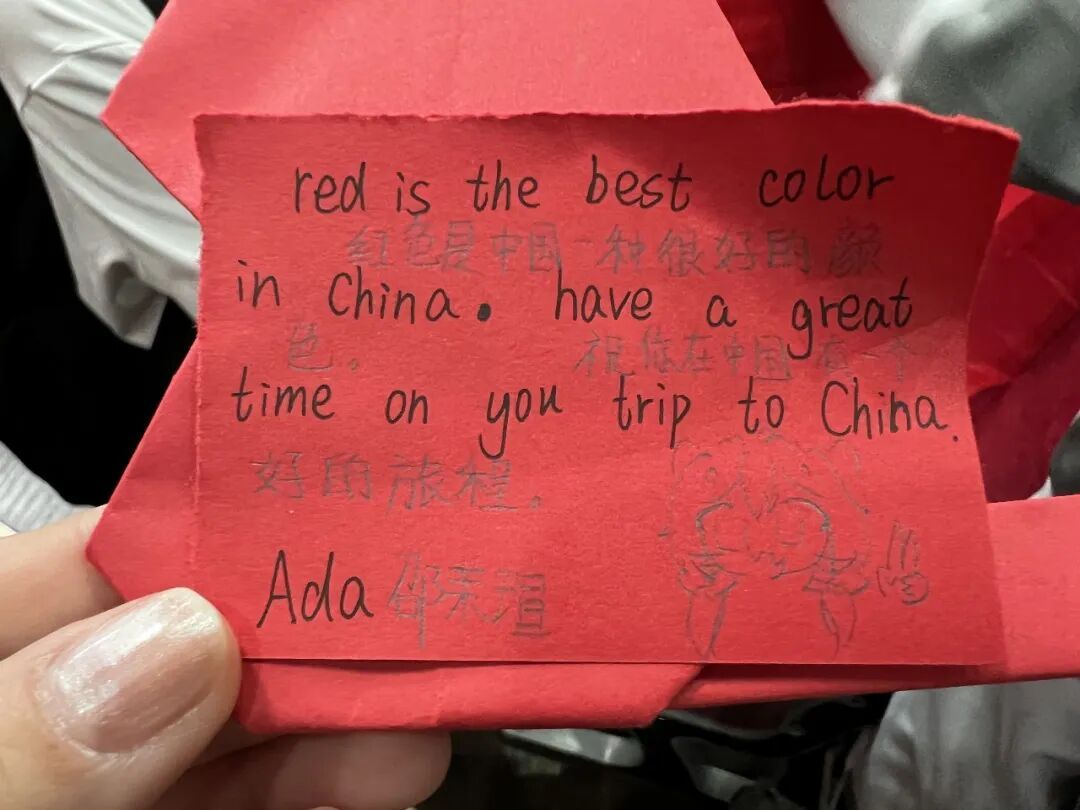 red is the best color
红色是中国一种很好的颜
in China. have a great
色。 祝你在中国有一个
time on you trip to China.
好的旅程。
Ada